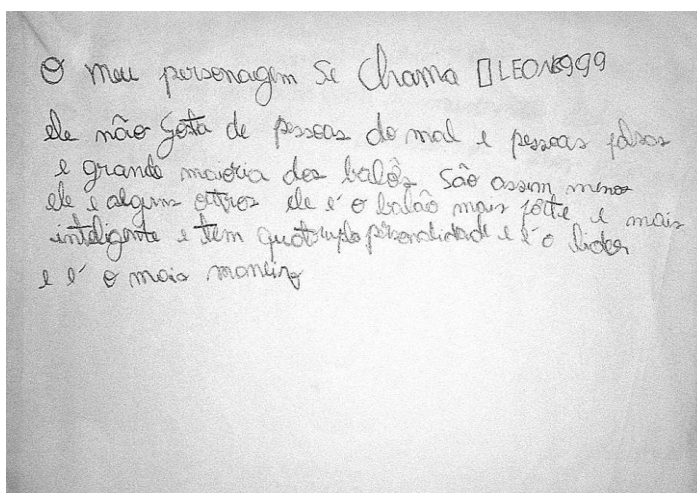 O meu personagem se chama ▯LEON8999
ele não gosta de pessoas do mal e pessoas falsas
e grande maioria dos balões são assim menos
ele e alguns outros ele é o balão mais forte e mais
inteligente e tem quatruplo personalidade e é o lider
e é o mais maneiro